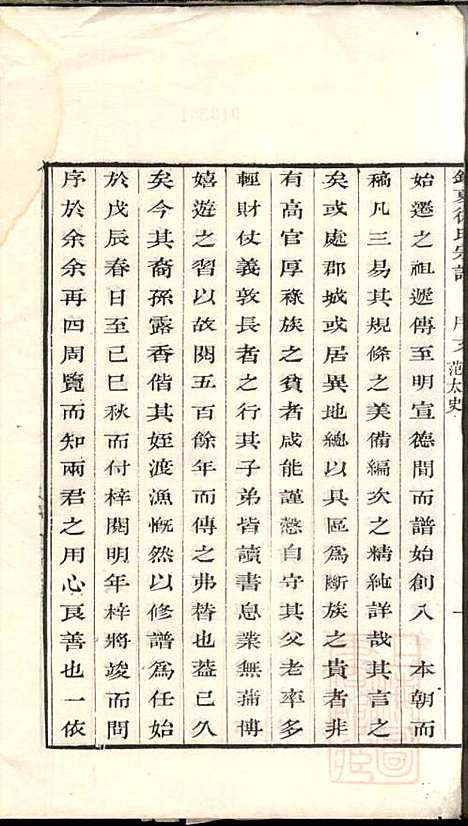 序文 范太史
始遷之祖遞傳至明宣德間而譜始創入　本朝而
稿凡三易其規條之美備編次之精純詳哉其言之
矣或處郡城或居異地總以具區為斷族之貴者非
有高官厚祿族之貧者咸能謹愨自守其父老率多
輕財仗義敦長者之行其子弟皆讀書息業無蒲博
嬉遊之習以故閱五百餘年而傳之弗替也蓋已久
矣今其裔孫露香偕其姪渡漁慨然以修譜為任始
於戊辰春日至己巳秋而付梓閱明年梓將竣而問
序於余余再四周覽而知兩君之用心良善也一依